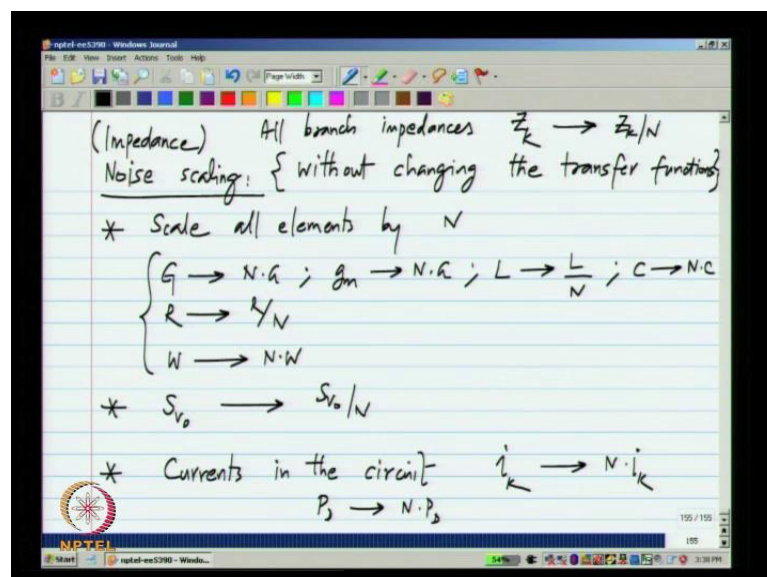 nptel-ee5390 - Windows Journal
File Edit View Insert Actions Tools Help
Page Width
B I
(Impedance) All branch impedances Z_K → Z_K/N
Noise scaling: { without changing the transfer functions }
* Scale all elements by N
G → N.G ; g_m → N.G ; L → L/N ; C → N.C
R → R/N
W → N.W
* S_vo → S_vo/N
* Currents in the circuit i_K → N.i_K
P_D → N.P_D
155 / 155
155
NPTEL
Start nptel-ee5390 - Windo... 54% 3:38 PM